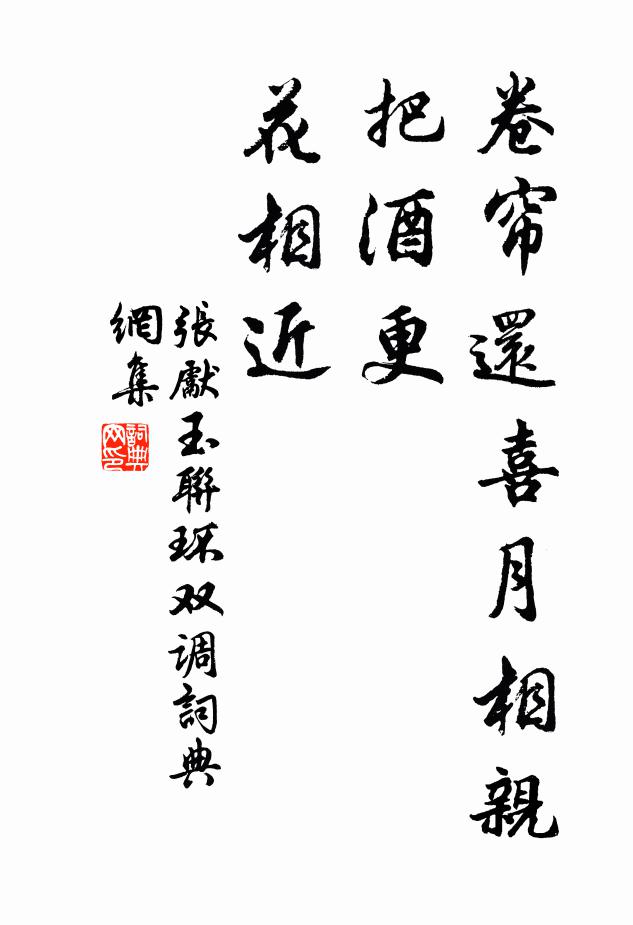 卷帘還喜月相親
把酒更
花相近
張獻玉聯环双调詞典
網集
詞典網印